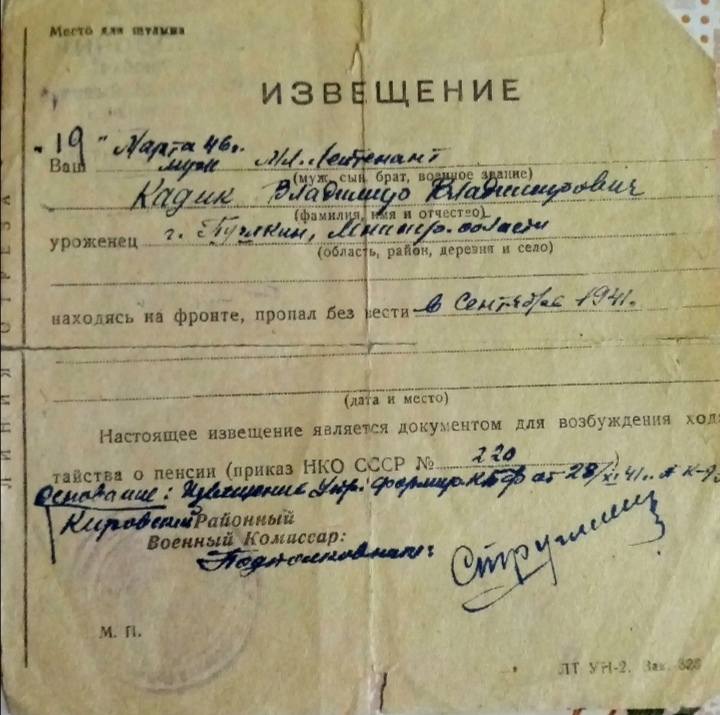 Место для штампа
ИЗВЕЩЕНИЕ
"19" Марта 46г.
Ваш муж Мл. Лейтенант
(муж, сын, брат, военное звание)
Кадик Владимир Владимирович
(фамилия, имя и отчество)
уроженец г. Пушкин, Ленингр. области
(область, район, деревня и село)
находясь на фронте, пропал без вести в Сентябре 1941г.
(дата и место)
Настоящее извещение является документом для возбуждения хода
тайства о пенсии (приказ НКО СССР № 220)
Основание: Извещение Упр. формир. КБФ от 28/XI 41г.
Кировский Районный
Военный Комиссар:
Подполковник:
М. П.
ЛТ УН-2. Зак. 828
ЛИНИЯ ОТРЕЗА